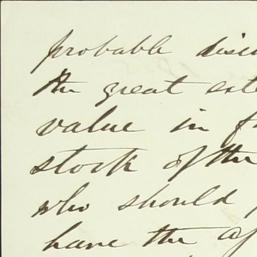 probable
the great
value in
stock of the
who should
have the